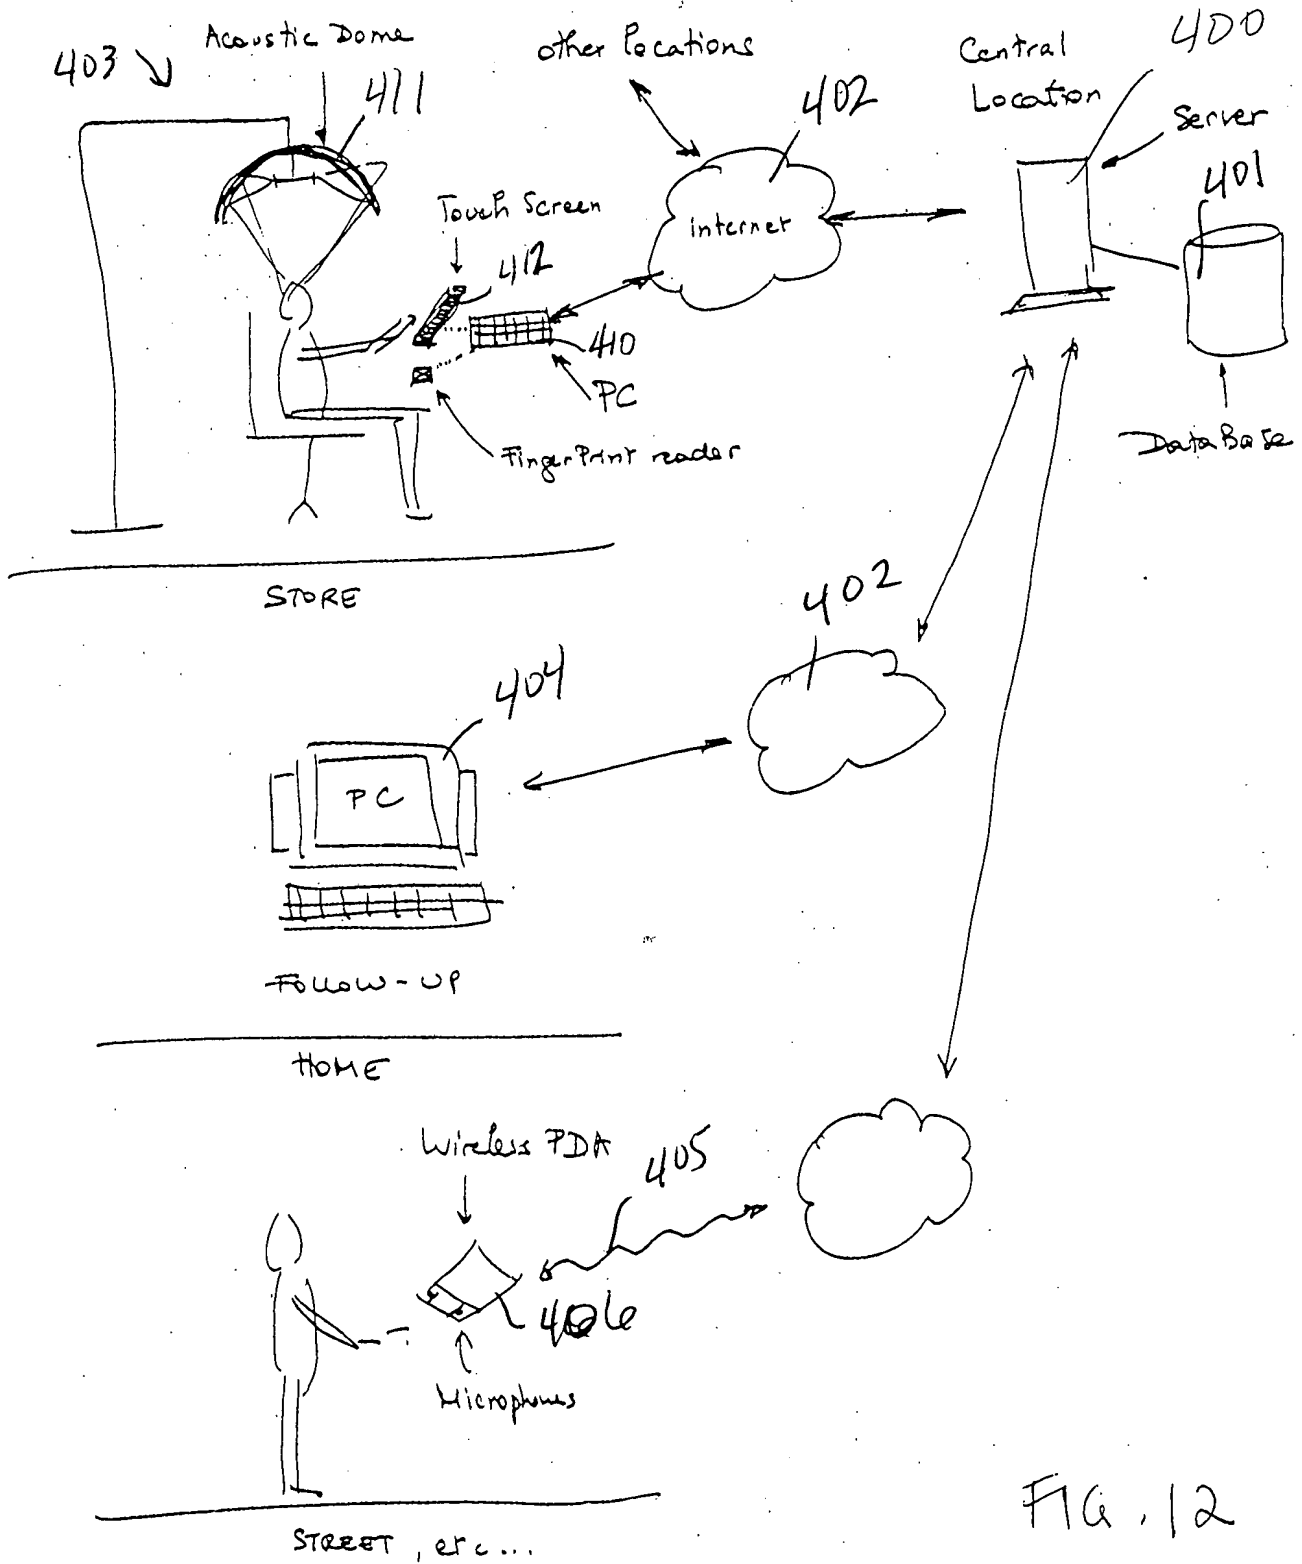 403
Acoustic Dome
411
other locations
402
internet
Central
Location
400
Server
401
DataBase
Touch Screen
412
410
PC
FingerPrint reader
STORE
402
404
PC
Follow-UP
HOME
Wireless PDA
405
406
Microphones
STREET, etc...
FIG. 12